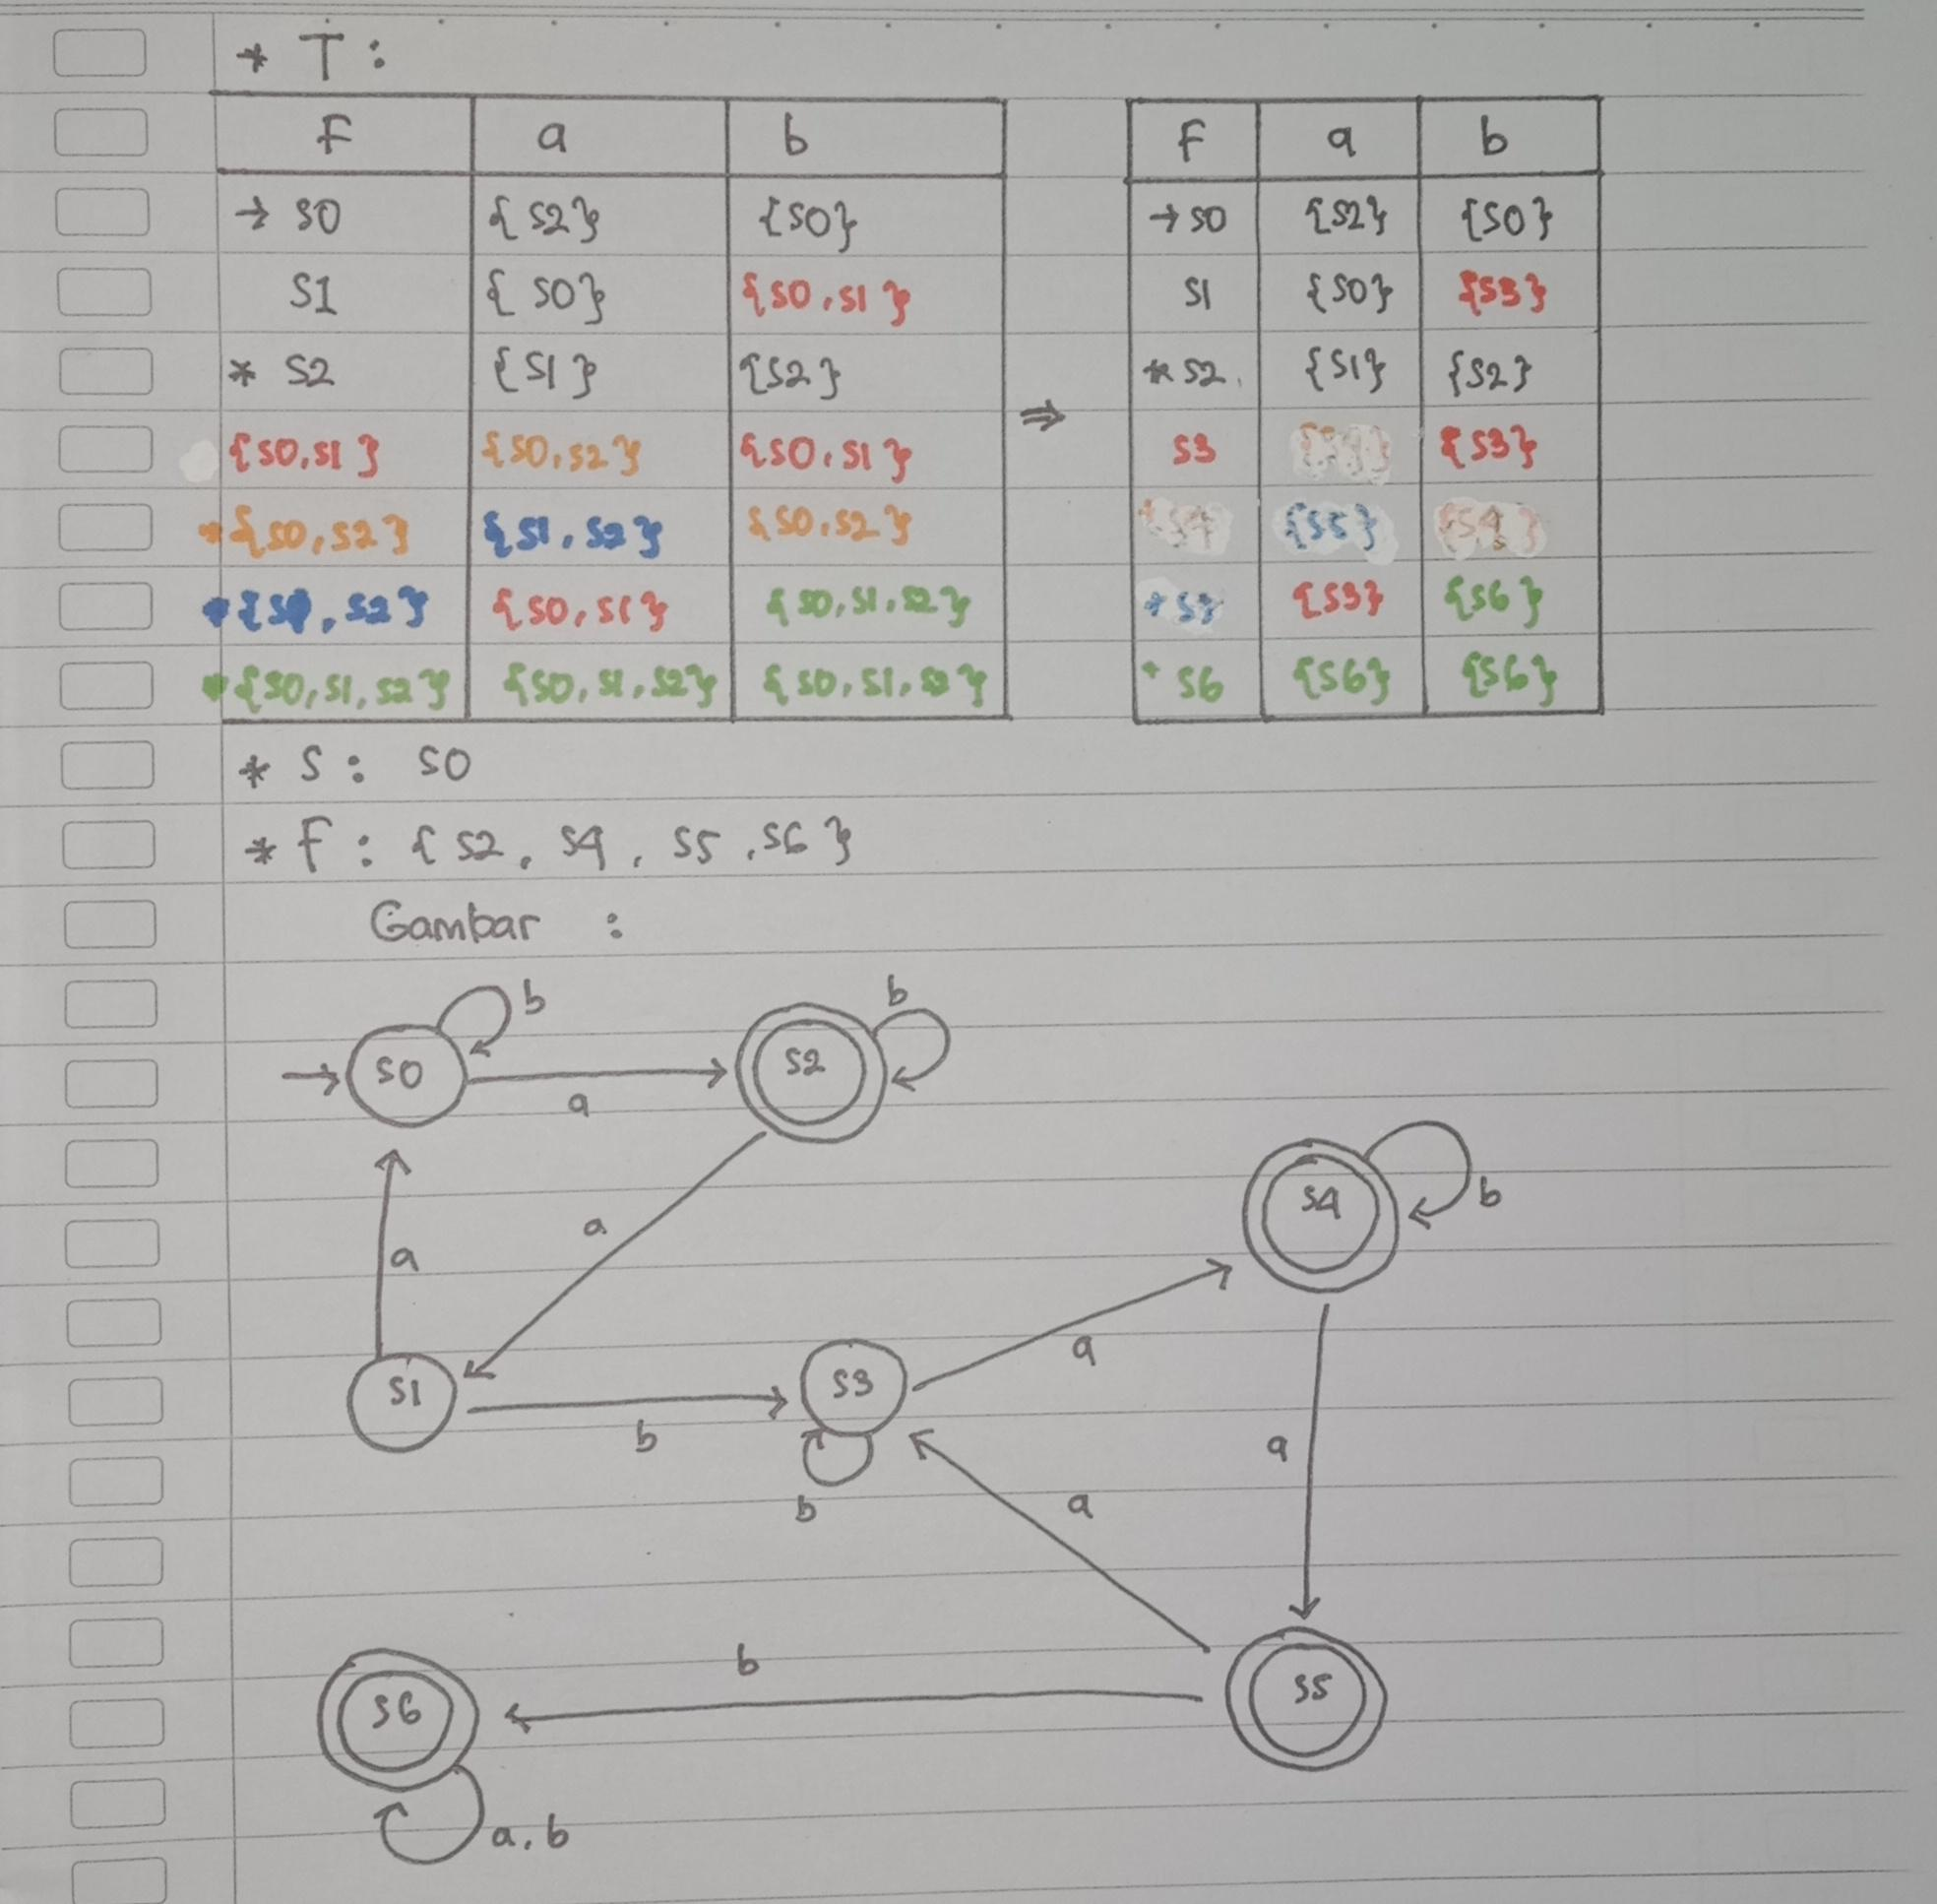 * T :
F a b
→ S0 {S2} {S0}
S1 {S0} {S0,S1}
* S2 {S1} {S2}
{S0,S1} {S0,S2} {S0,S1}
*{S0,S2} {S1,S2} {S0,S2}
*{S1,S2} {S0,S1} {S0,S1,S2}
*{S0,S1,S2} {S0,S1,S2} {S0,S1,S2}
⇒
F a b
→ S0 {S2} {S0}
S1 {S0} {S3}
* S2 {S1} {S2}
S3 {S3}
{S5} {S4}
{S3} {S6}
* S6 {S6} {S6}
* S : S0
* F : {S2, S4, S5, S6}
Gambar :
b
b
S0
S2
a
S4
b
a
a
a
S1
S3
b
a
b
a
b
S6
S5
a,b